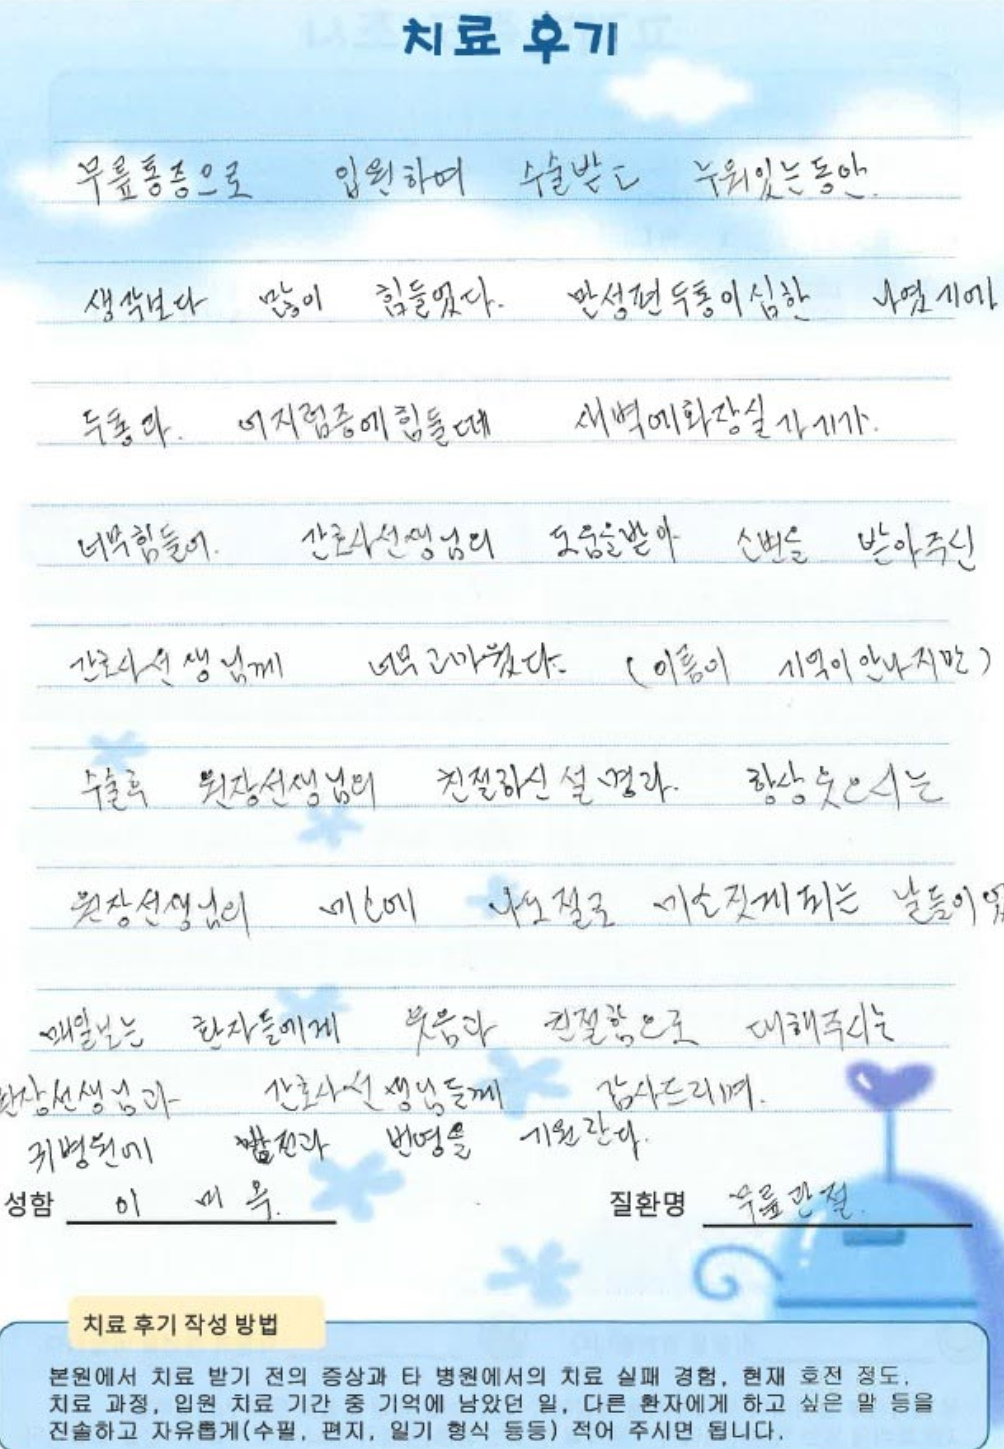 치료 후기
무릎통증으로 입원하여 수술받고 누워있는동안.
생각보다 많이 힘들었다. 만성편두통이심한 나였기에
두통과. 어지럼증에힘들때 새벽에화장실가기가.
너무힘들어. 간호사선생님의 도움을받아 신변을 받아주신
간호사선생님께 너무고마웠다. (이름이 기억이안나지만)
수술후 원장선생님의 친절하신설명과. 항상웃으시는
원장선생님의 미소에 나도절로 미소짓게되는 날들이었
매일보는 환자들에게 웃음과 친절함으로 대해주시는
원장선생님과 간호사선생님들께 감사드리며.
귀병원에 발전과 번영을 기원한다.
성함 이 미 옥. 질환명 무릎관절.
치료 후기 작성 방법
본원에서 치료 받기 전의 증상과 타 병원에서의 치료 실패 경험, 현재 호전 정도,
치료 과정, 입원 치료 기간 중 기억에 남았던 일, 다른 환자에게 하고 싶은 말 등을
진솔하고 자유롭게(수필, 편지, 일기 형식 등등) 적어 주시면 됩니다.